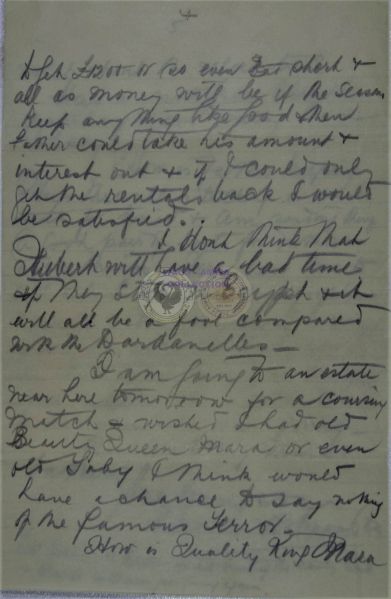 4
to get £1200 or so even I at short &
all as money will be if the season
keep anything like good & then
Father could take his amount &
interest out & if I could only
get the rentals back I would
be satisfied.
I dont think that
Hubert will have a bad time
if they stay in Egypt & it
will all be a fool compared
with the Dardanelles —
I am going to an estate
near here tomorrow for a coursing
match & wished I had old
Beauty Queen Mara or even
old Toby I think would
have a chance to say nothing
of the famous Terror —
How is Quality King Mara